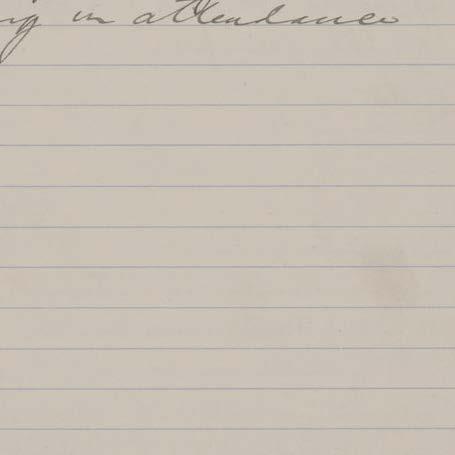 in attendance